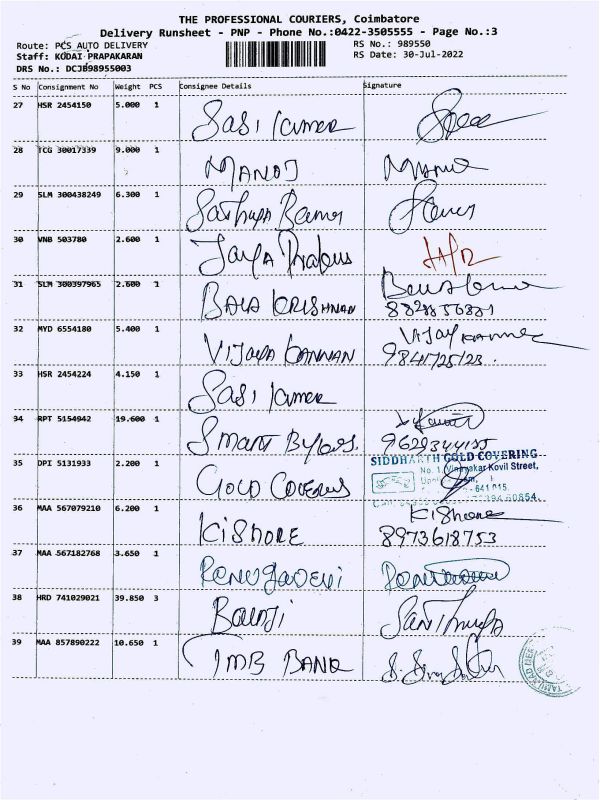 THE PROFESSIONAL COURIERS, Coimbatore
Delivery Runsheet - PNP - Phone No.:0422-3505555 - Page No.:3
Route: PCS AUTO DELIVERY RS No.: 989550
Staff: KODAI PRAPAKARAN RS Date: 30-Jul-2022
DRS No.: DCJB98955003
S No Consignment No Weight PCS Consignee Details Signature
27 HSR 2454150 5.000 1 Sasi Kumer
28 TCG 30017339 9.000 1 MANOJ
29 SLM 300438249 6.300 1
30 VNB 503780 2.600 1 Jaya
31 SLM 300397965 2.600 1 BALA KRISHNAN
32 MYD 6554180 5.400 1 VIJAYA KANNAN
9841725123.
33 HSR 2454224 4.150 1 Sasi Kumer
34 RPT 5154942 19.600 1 Smart
9629344155
35 DPI 5131933 2.200 1 GOLD
SIDDHARTH GOLD COVERING
No. 1, Vinayakar Kovil Street,
-641 015.
36 MAA 567079210 6.200 1 KISHORE Kishore
8973618753
37 MAA 567182768 3.650 1 Renugadevi
38 HRD 741029021 39.850 3 Balaji
39 MAA 857890222 10.650 1 TMB BANK